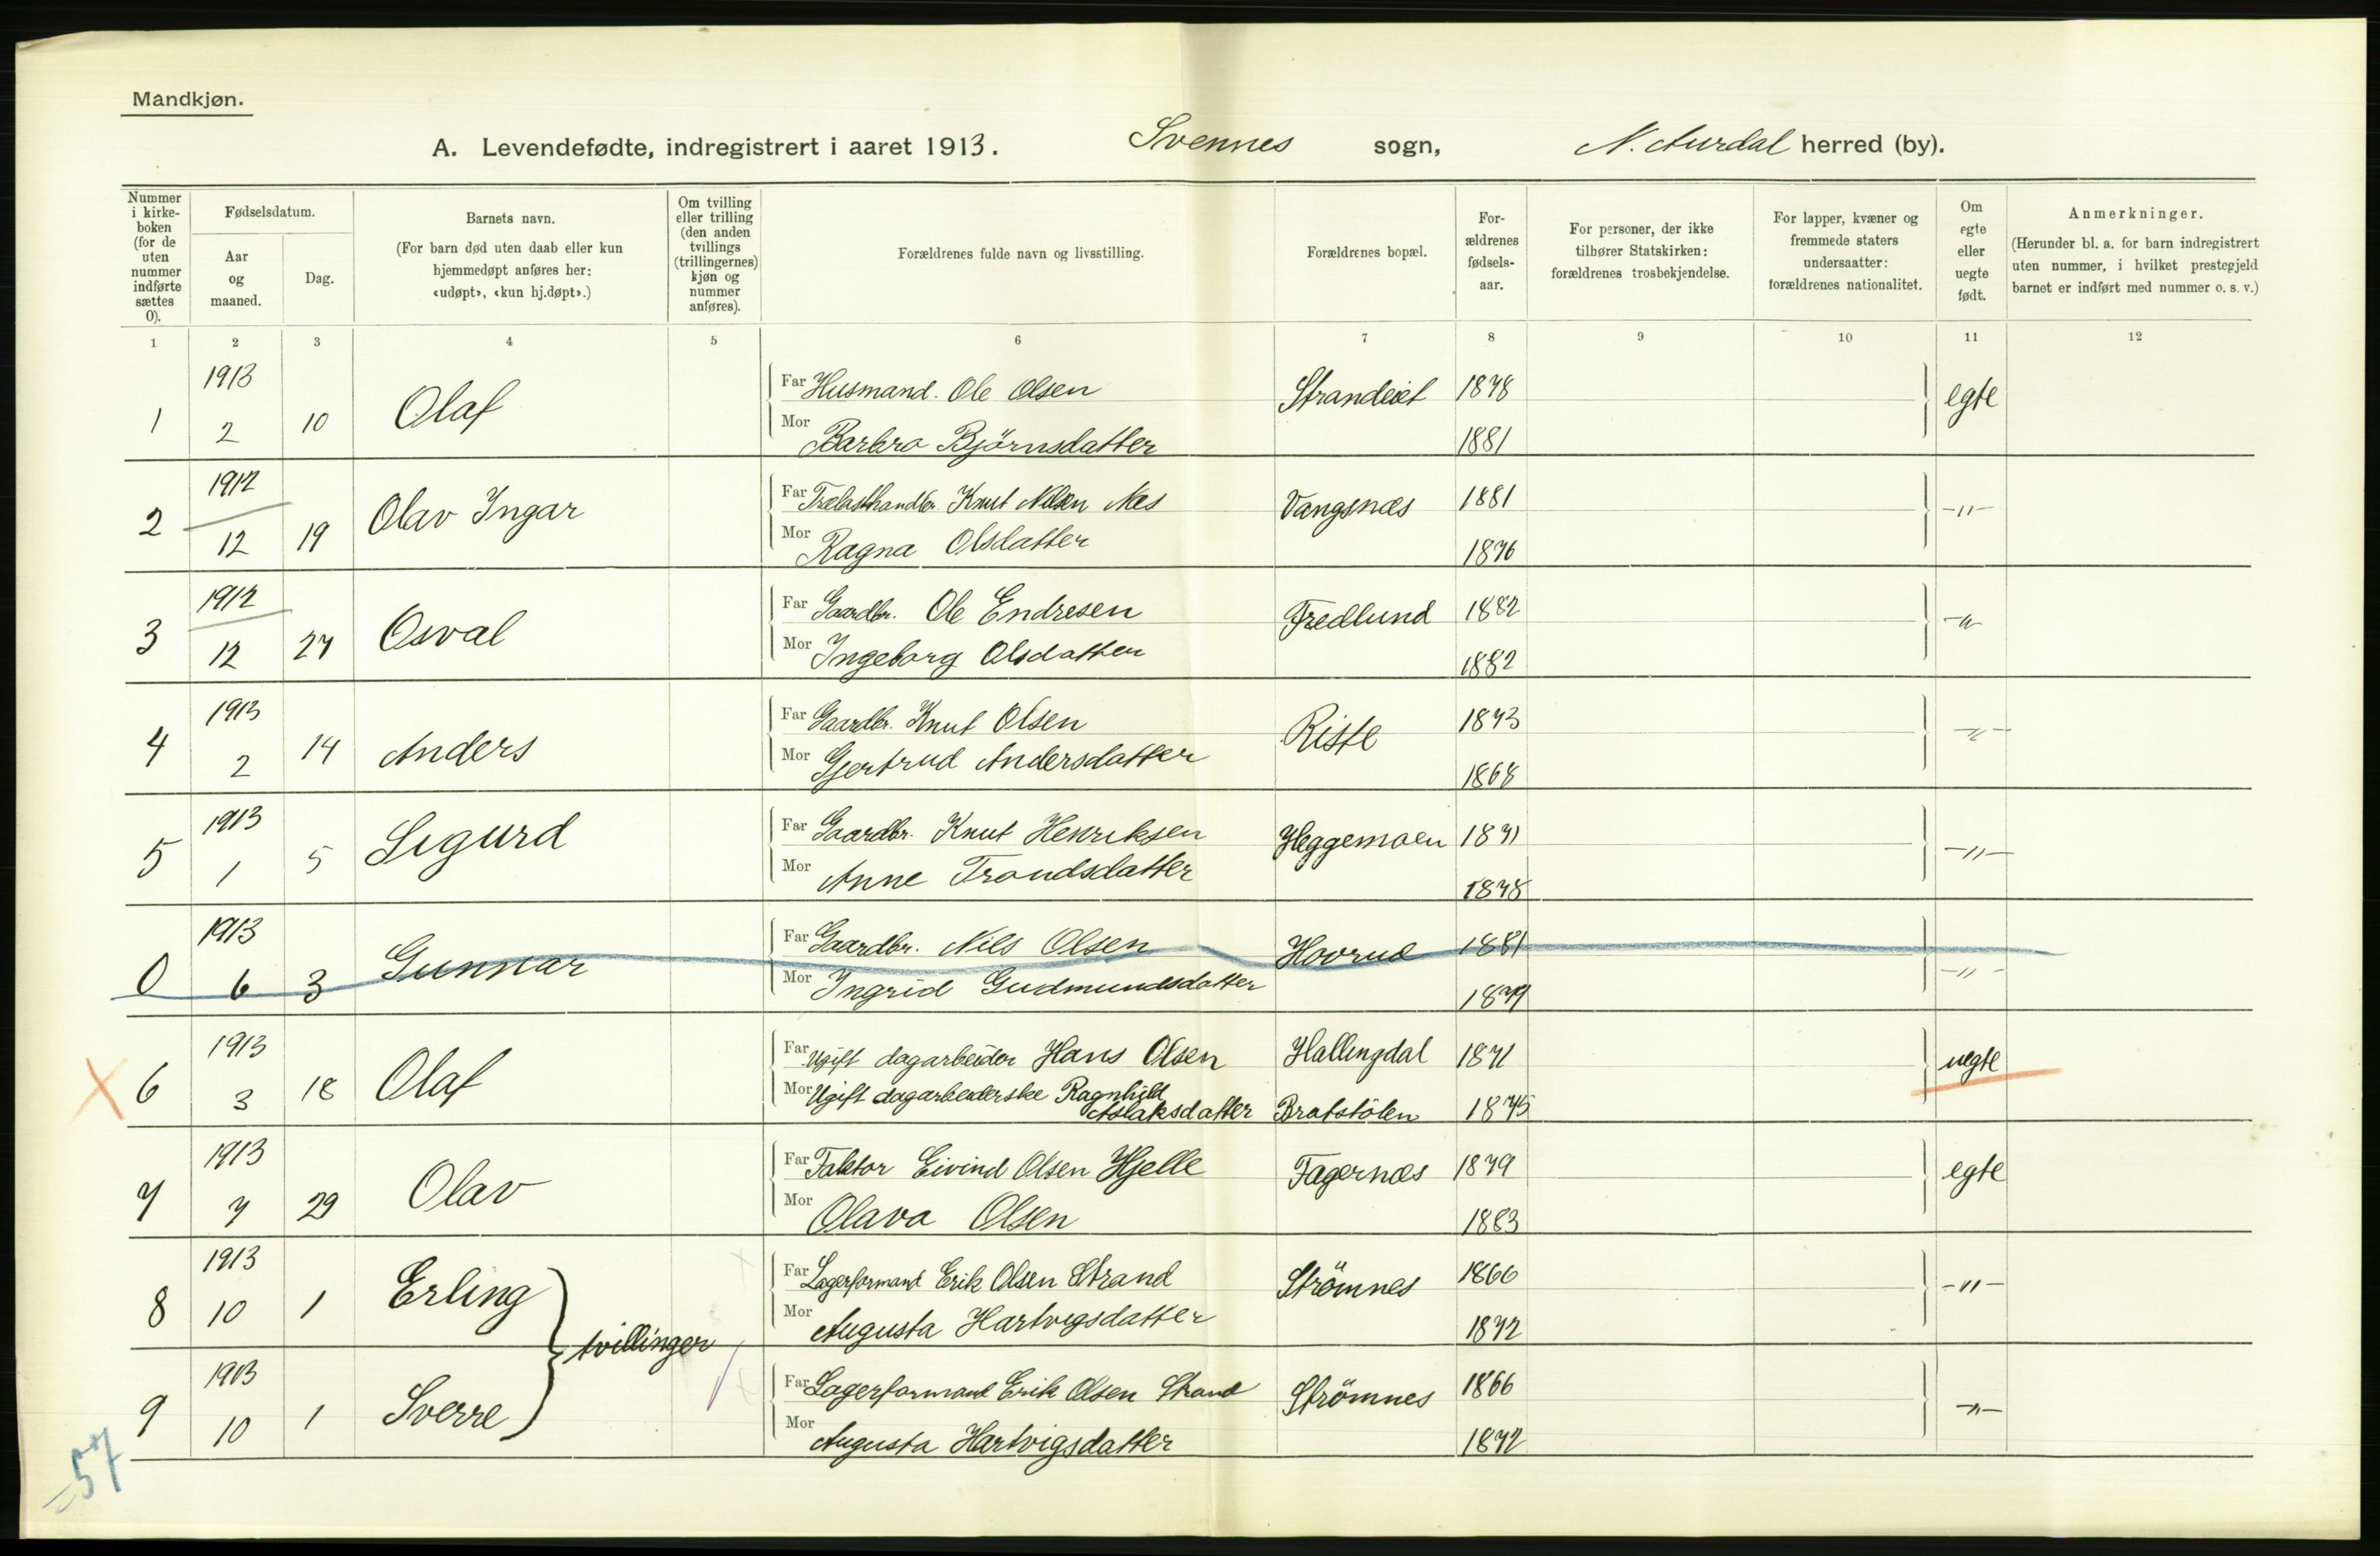 Mandkjøn.
A. Levendefødte, indregistrert i aaret 1913. Svennes sogn, N. Aurdal herred (by).
Nummer i kirke-boken (for de uten nummer indførte sættes 0).
Fødselsdatum.
Aar og maaned.
Dag.
Barnets navn.
(For barn død uten daab eller kun hjemmedøpt anføres her: «udøpt», «kun hj.døpt».)
Om tvilling eller trilling (den anden tvillings (trillingernes) kjøn og nummer anføres).
Forældrenes fulde navn og livsstilling.
Forældrenes bopæl.
For-ældrenes fødsels-aar.
For personer, der ikke tilhører Statskirken: forældrenes trosbekjendelse.
For lapper, kvæner og fremmede staters undersaatter: forældrenes nationalitet.
Om egte eller uegte født.
Anmerkninger.
(Herunder bl. a. for barn indregistrert uten nummer, i hvilket prestegjeld barnet er indført med nummer o. s. v.)
1 2 3 4 5 6 7 8 9 10 11 12
1913
Far Husmand. Ole Olsen Strandeiet 1878 egte
1 2 10 Olaf
Mor Barbro Björnsdatter 1881
1912
Far Trælasthandler Knut Nilsen Næs Vangsnæs 1881 -"-
2 12 19 Olav Ingar
Mor Ragna Olsdatter 1876
1912
Far Gaardbr. Ole Endresen Fredlund 1882 -"-
3 12 27 Osval
Mor Ingeborg Olsdatter 1882
1913
Far Gaardbr. Knut Olsen Riste 1873 -"-
4 2 14 Anders
Mor Gjertrud Andersdatter 1868
1913
Far Gaardbr. Knut Henriksen Heggemoen 1871 -"-
5 1 5 Sigurd
Mor Anne Trondsdatter 1878
1913
Far Gaardbr. Nils Olsen Hovrud 1881 -"-
0 6 3 Gunnar
Mor Ingrid Gudmundsdatter 1879
1913
Far Ugift dagarbeider Hans Olsen Hallingdal 1871 uegte
6 3 18 Olaf
Mor Ugift dagarbeiderske Ragnhild
Aslaksdatter Bratstölen 1875
1913
Far Faktor Eivind Olsen Hjelle Fagernæs 1879 egte
7 7 29 Olav
Mor Olava Olsen 1883
1913
Far Lagerformand Erik Olsen Strand Strömnes 1866 -"-
8 10 1 Erling
Mor Augusta Hartvigsdatter 1872
tvillinger
1913
Far Lagerformand Erik Olsen Strand Strömnes 1866 -"-
9 10 1 Sverre
Mor Augusta Hartvigsdatter 1872
-57